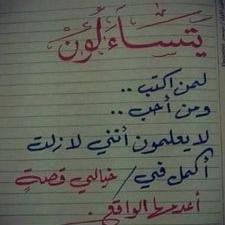 يتساءلون
لمن اكتب ..
ومن أحب ..
لا يعلمون أنني لا زلت
أكمل في / خيالي قصةٍ
أعدمها الواقع .